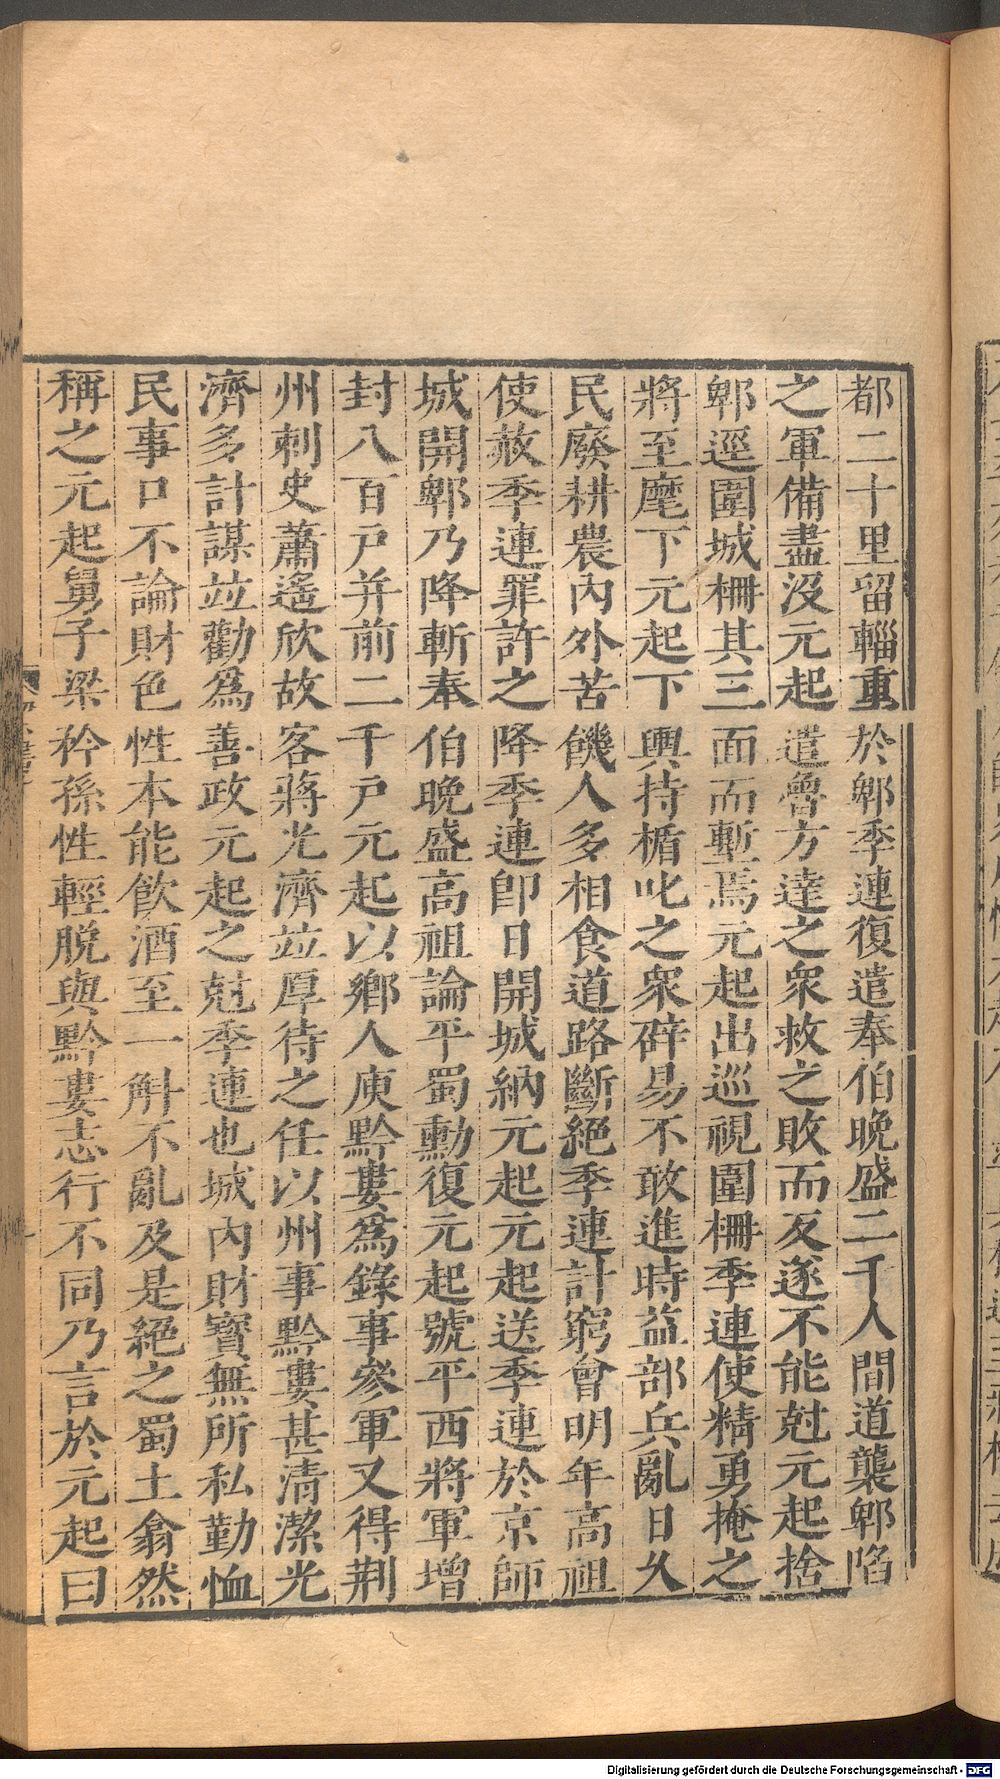 都二十里留輜重於郫季連復遣奉伯晚盛二千人間道襲郫陷
之軍備盡沒元起遣魯方達之衆救之敗而反遂不能尅元起捨
郫逕圍城柵其三面而塹焉元起出巡視圍柵季連使精勇掩之
將至麾下元起下輿持楯叱之衆辟易不敢進時益部兵亂日久
民廢耕農內外苦饑人多相食道路斷絕季連計窮會明年高祖
使赦季連罪許之降季連卽日開城納元起元起送季連於京師
城開郫乃降斬奉伯晚盛高祖論平蜀勳復元起號平西將軍增
封八百戸并前二千戸元起以鄉人庾黔婁爲錄事參軍又得荆
州刺史蕭遙欣故客蔣光濟竝厚待之任以州事黔婁甚清潔光
濟多計謀竝勸爲善政元起之尅季連也城內財寶無所私勤恤
民事口不論財色性本能飲酒至一斛不亂及是絕之蜀土翕然
稱之元起舅子梁矜孫性輕脱與黔婁志行不同乃言於元起曰
Digitalisierung gefördert durch die Deutsche Forschungsgemeinschaft - DFG